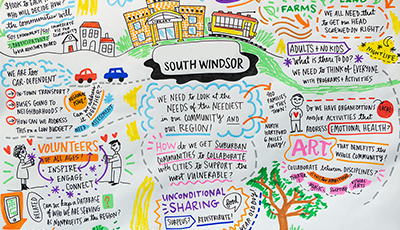 WHO WILL DECIDE HOW
the COMMUNITY WILL
PARTICIPATE?
SOUTH WINDSOR
FARMS
WE ALL NEED THAT
to GET OUR HEAD
SCREWED ON RIGHT!
ADULTS + NO KIDS
What is there to do?
WE NEED to THINK of EVERYONE
WITH PROGRAMS + ACTIVITIES
NIGHTLIFE
WE ARE TOO
CAR-DEPENDENT
IN-TOWN TRANSPORT?
BUSES GOING TO
NEIGHBORHOODS?
HOW CAN WE ADDRESS
THIS ON a LOW BUDGET?
WE NEED to LOOK at the
NEEDS of the NEEDIEST
in OUR COMMUNITY and
OUR REGION!
HOW do WE GET SUBURBAN
COMMUNITIES to COLLABORATE
with CITIES to SUPPORT the
MOST VULNERABLE?
DO WE HAVE ORGANIZATIONS
and/or ACTIVITIES that
ADDRESS EMOTIONAL HEALTH?
LOCAL
ART THAT BENEFITS the
WHOLE COMMUNITY!
COLLABORATE across DISCIPLINES?
VOLUNTEERS
of ALL AGES!
INSPIRE
ENGAGE
CONNECT
CAN we BUILD a DATABASE
of WHO WE ARE SERVING
AS NONPROFITS in the REGION?
UNCONDITIONAL
SHARING
Food
SURPLUS? REDISTRIBUTE!